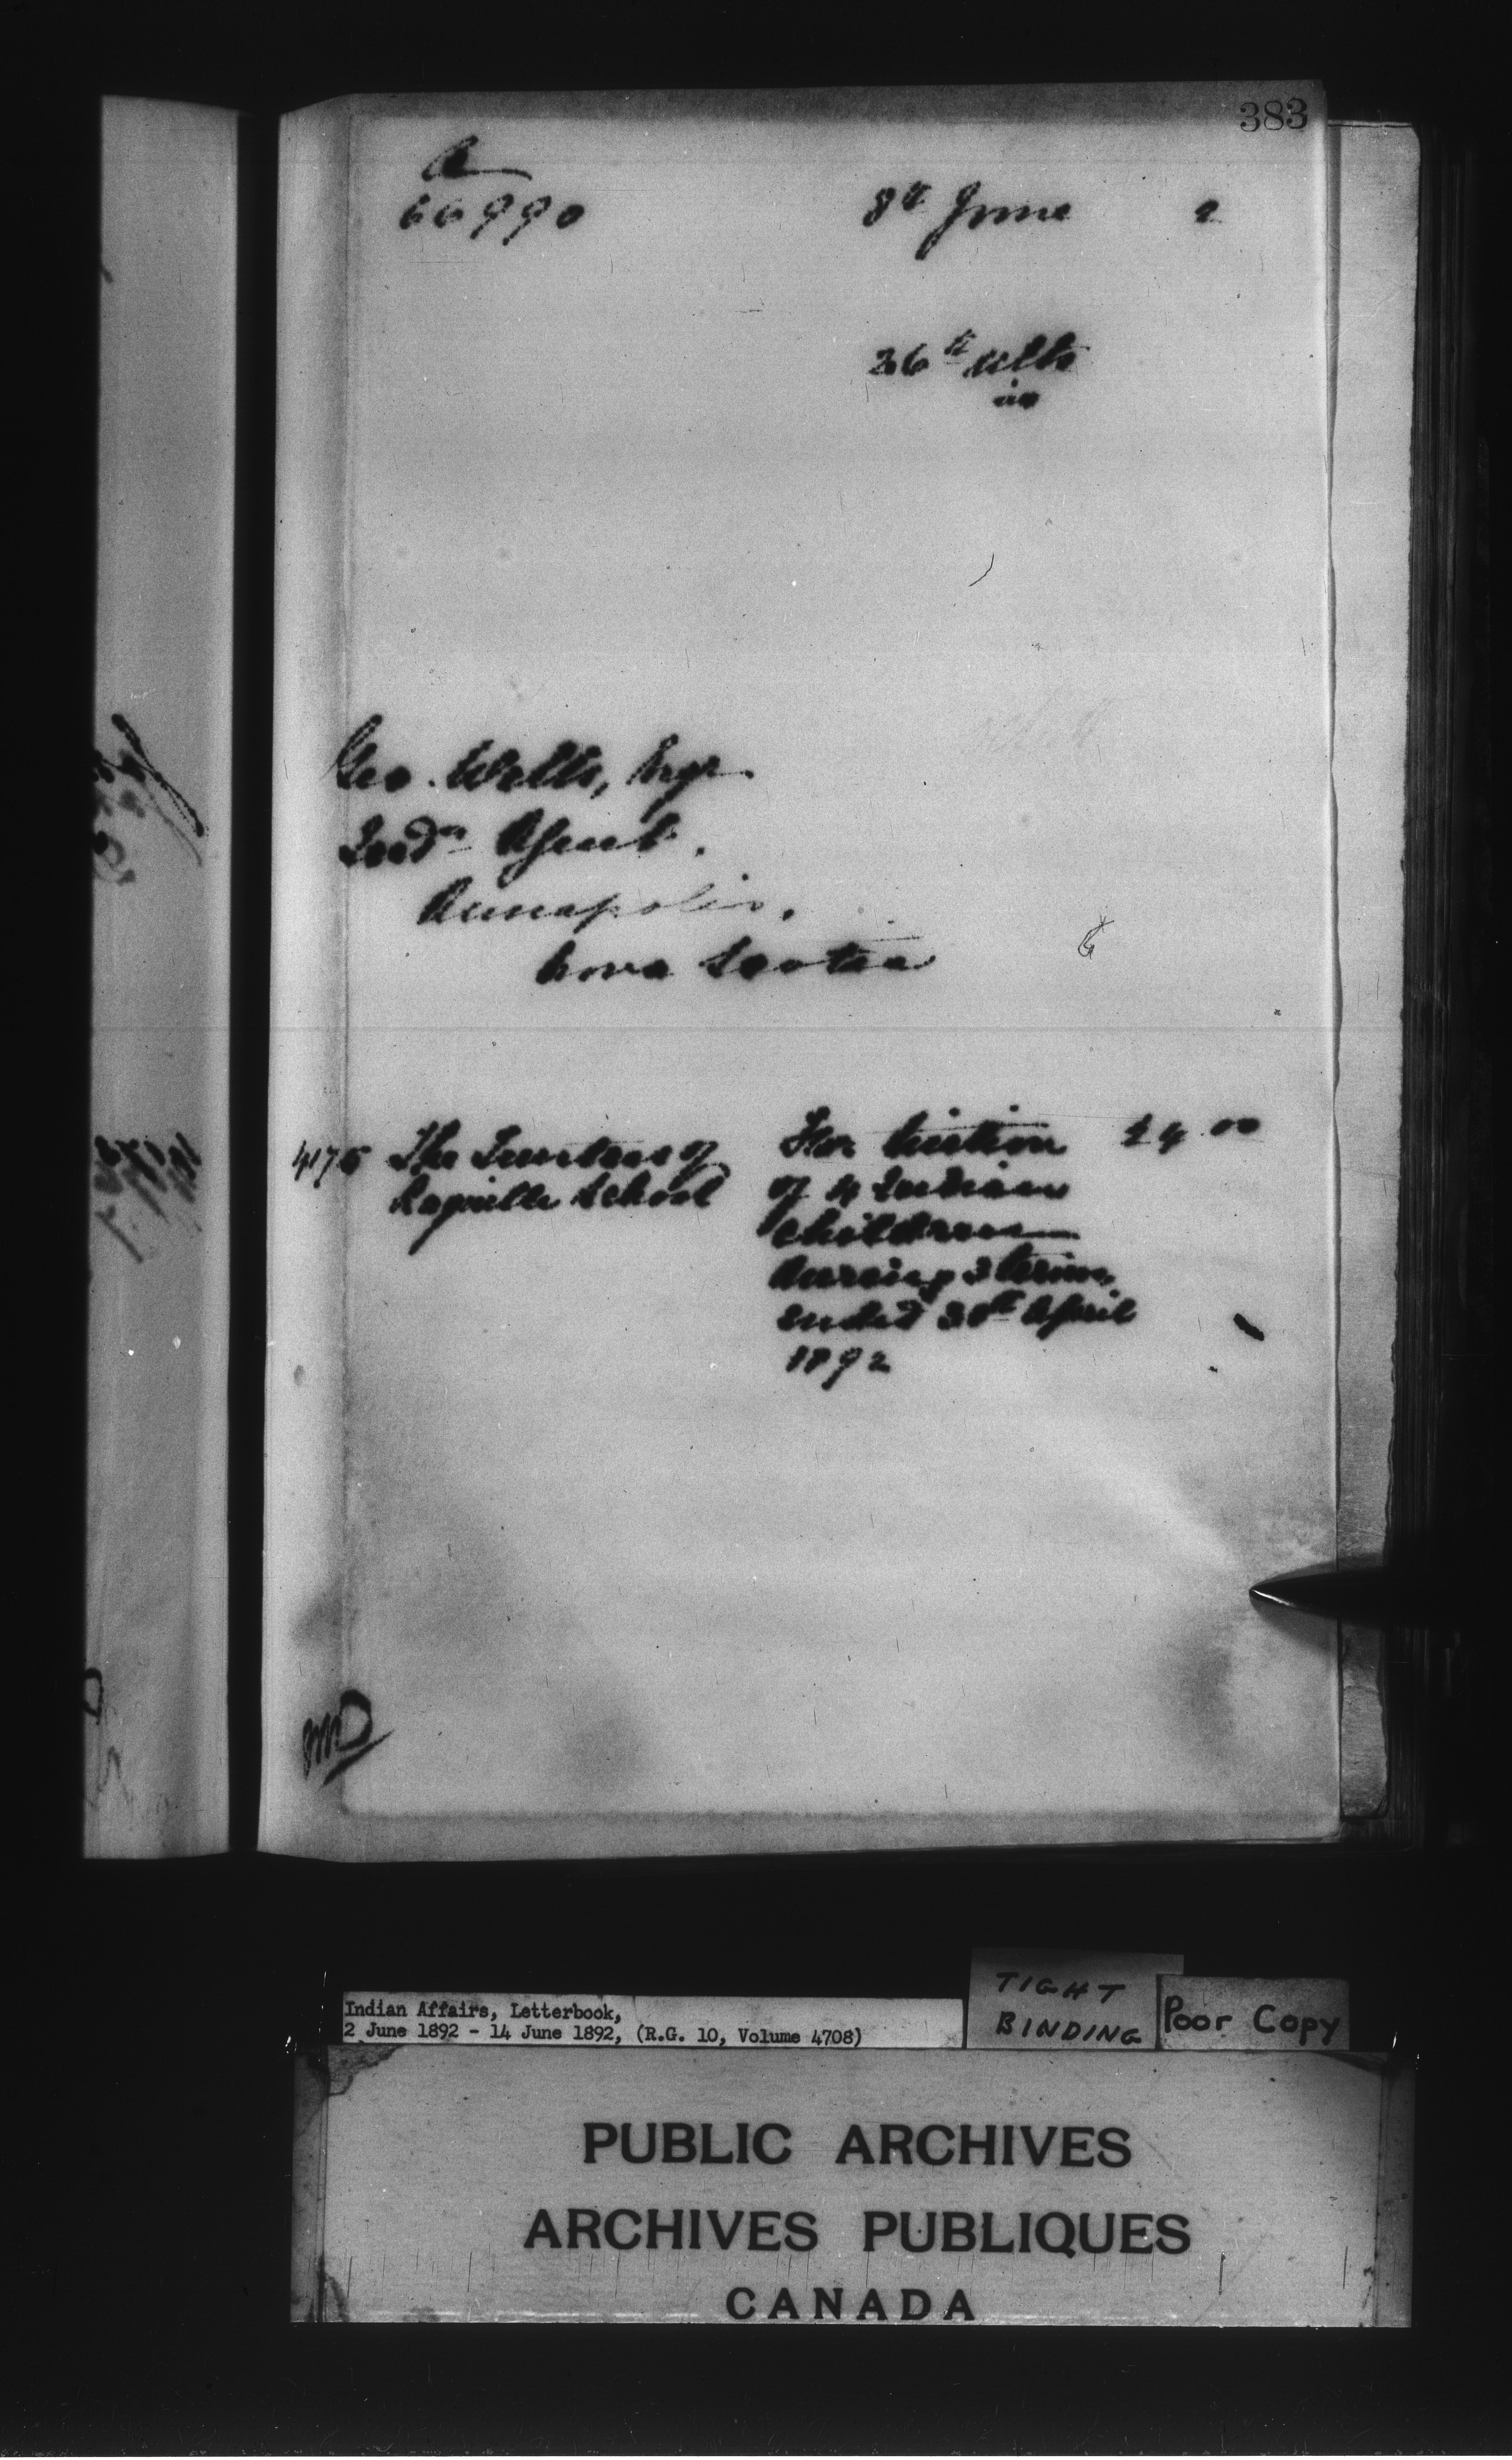 383
66990
8th June 2
26th ulto
Geo. Wells, Esqr.
Indn Agent.
Annapolis,
Nova Scotia
4175 The Trustees of
School
For tuition
of 4 Indian
children
during 3 terms
ended 30th April
1892
24.00
Indian Affairs, Letterbook,
2 June 1892 - 14 June 1892, (R.G. 10, Volume 4708)
TIGHT
BINDING
Poor Copy
PUBLIC ARCHIVES
ARCHIVES PUBLIQUES
CANADA